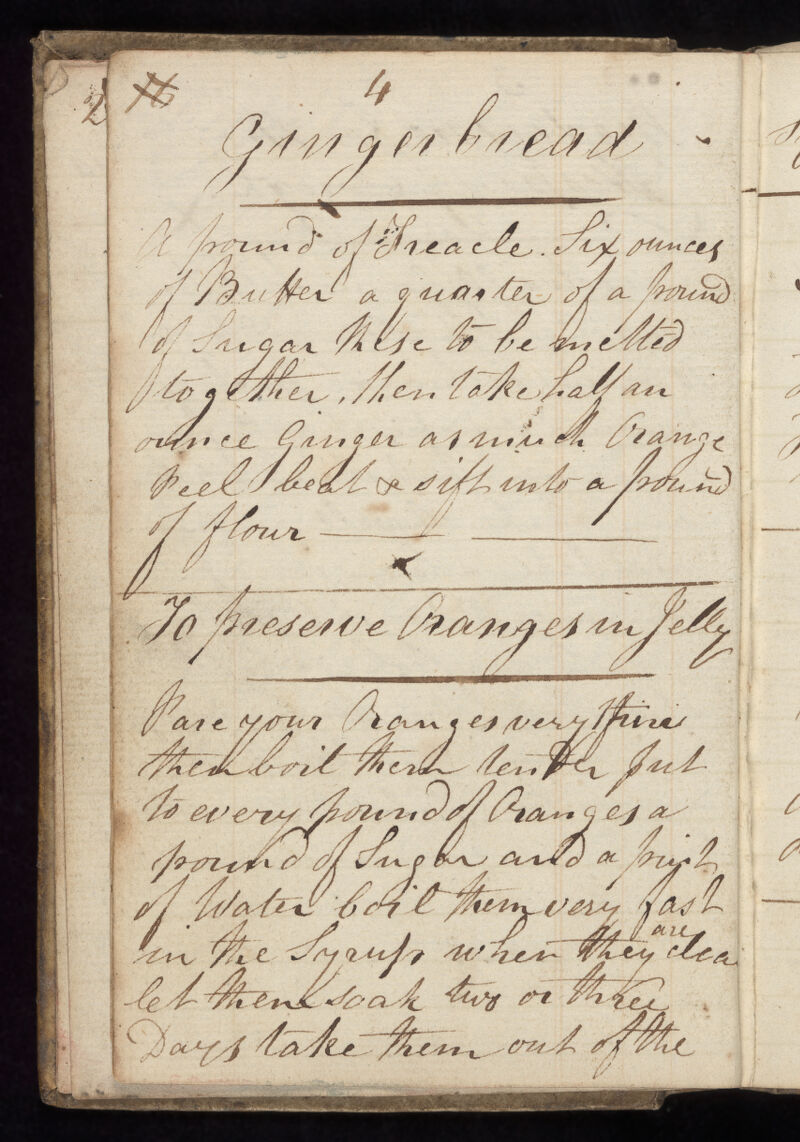 4
Gingerbread
A pound of Treacle. Six ounces
of Butter a quarter of a pound
of Sugar these to be melted
together, then take half an
ounce Ginger as much Orange
Peel beat & sift into a pound
of flour
To preserve Oranges in Jelly
Pare your Oranges very fine
then boil them tender put
to every pound of Oranges a
pound of Sugar and a pint
of Water boil them very fast
in the Syrup when they are clea
let them soak two or three
Days take them out of the